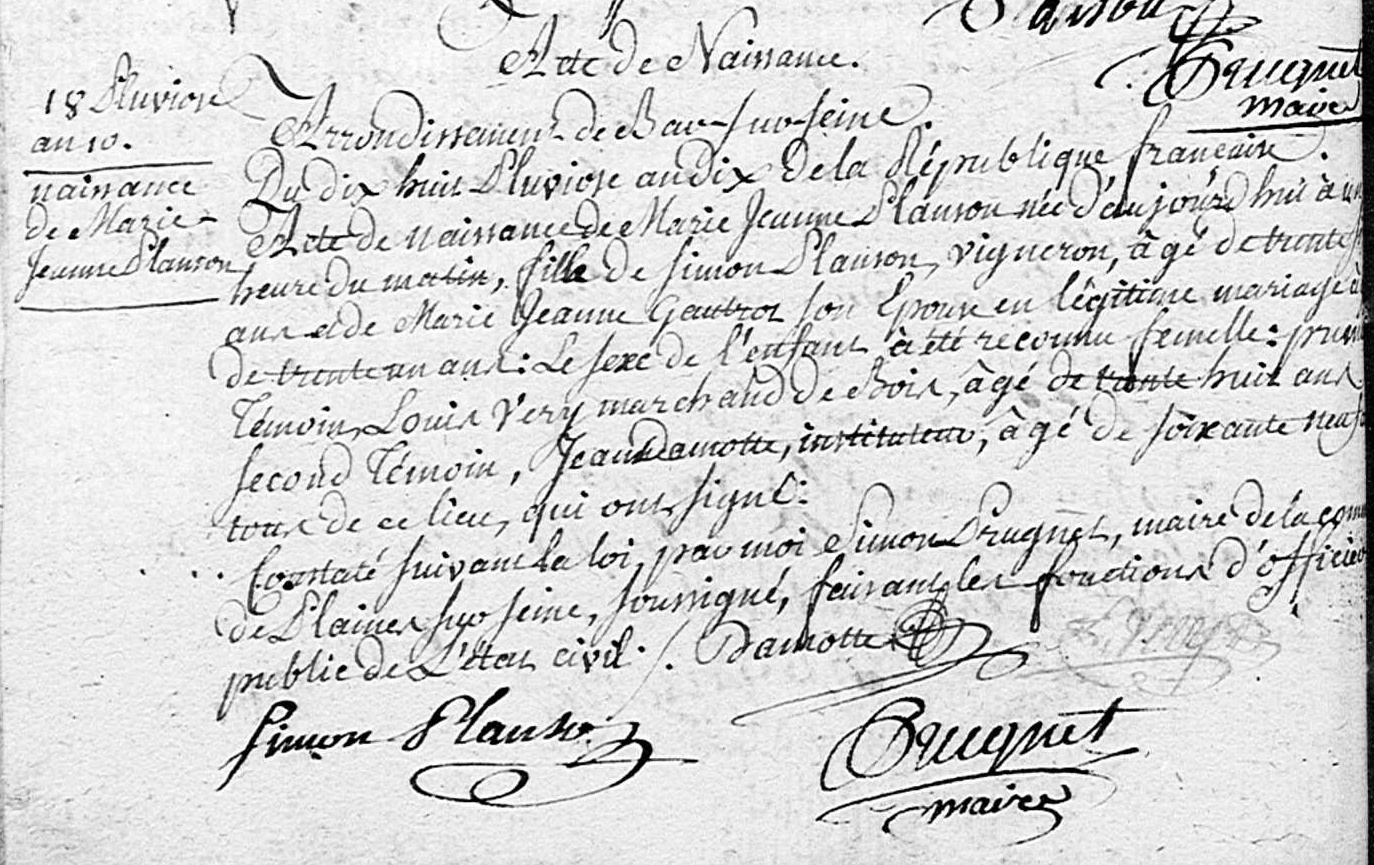 Acte de Naissance.
Pruquet
maire
18 Pluviose
an 10.
naissance
de Marie
Jeanne Planson
Arrondissement de Bar-sur-seine.
Du dix huit Pluviose an dix de la République francaise.
Acte de naissance de Marie Jeanne Planson née d'aujourd'hui à une
heure du matin, fille de Simon Planson, vigneron, âgé de trente
ans et de Marie Jeanne Gautrot son Epouse en légitime mariage
de trente un ans: Le sexe de l'enfant à été reconnu femelle: premier
Témoin, Louis Very marchand de Bois, âgé de trente huit ans
second Témoin, Jean Damotte, instituteur, âgé de soixante neuf
tous de ce lieu, qui ont signé:
Constaté suivant la loi, par moi Simon Pruquet, maire de la com
de Plaines sur seine, soussigné, faisant les fonctions d'officier
public de L'état civil. /. Damotte L. Very
Simon Planson
Pruquet
maire